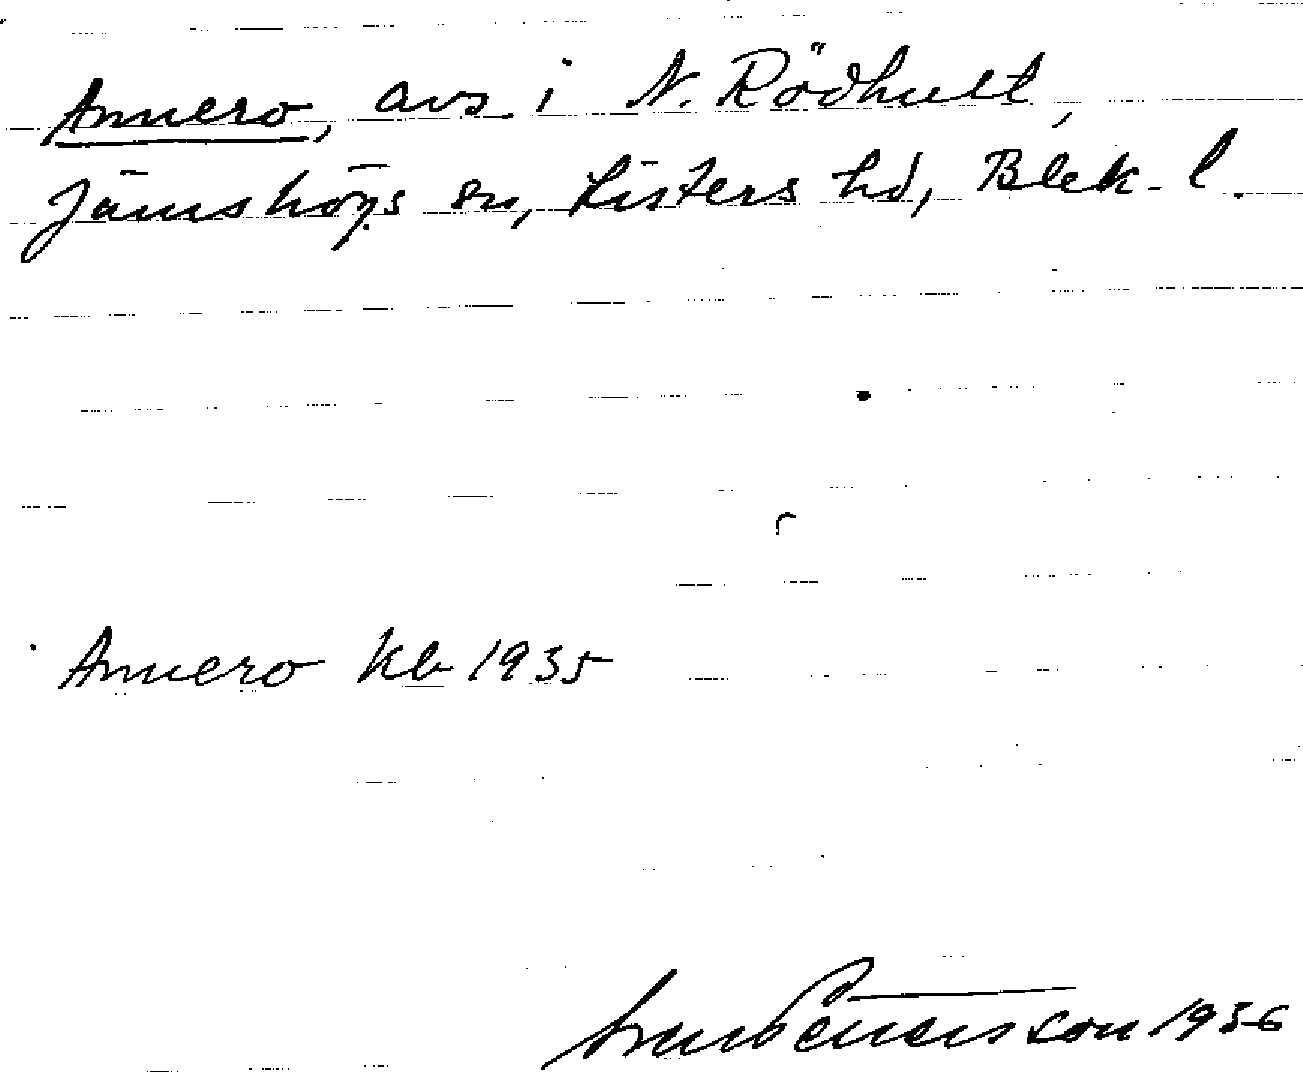 Annero, avs. i N. Rödhult,
Jämshögs sn, Listers hd, Blek. l.
Annero Kb 1935
Sven Benson 1956